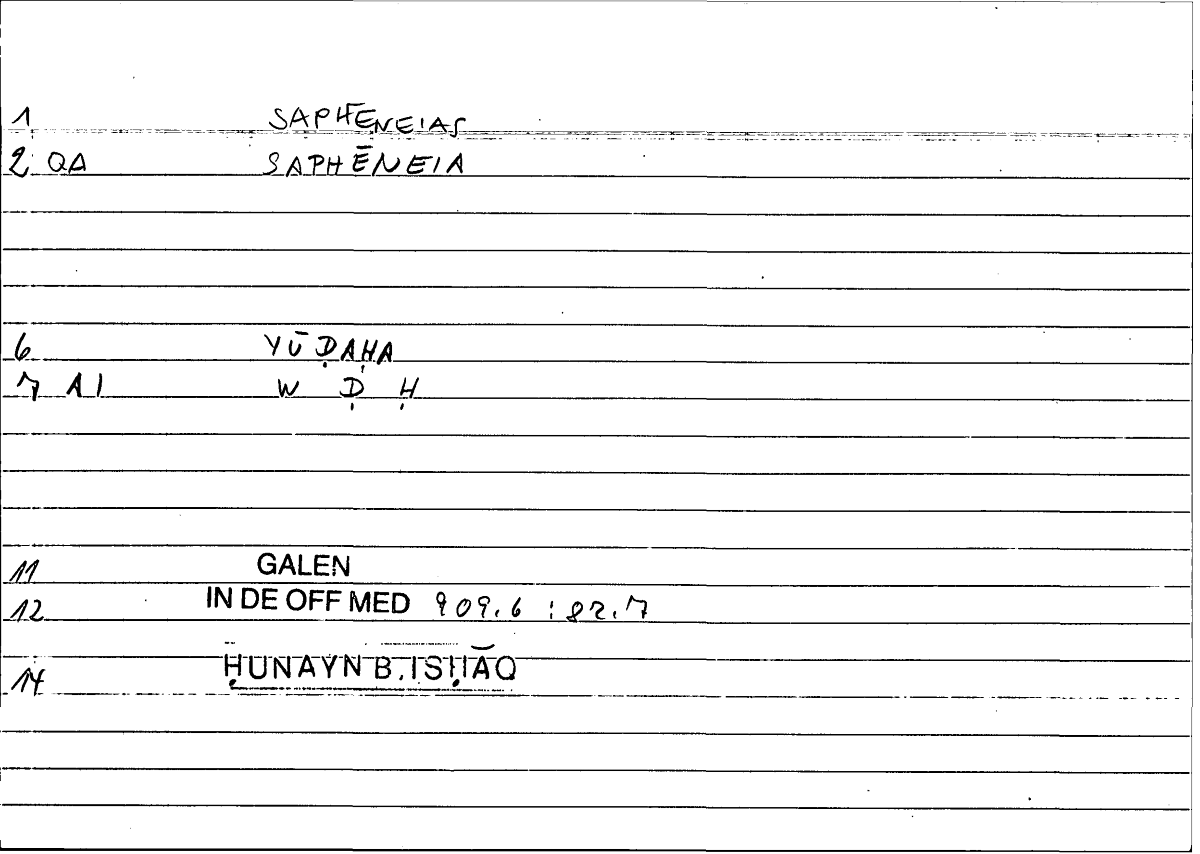 1 SAPHĒNEIAS
2 QA SAPHĒNEIA
6 YŪḌAḤA
7 AI W Ḍ Ḥ
11 GALEN
12 IN DE OFF MED 909.6 : 82.7
14 ḤUNAYN B. ISḤĀQ